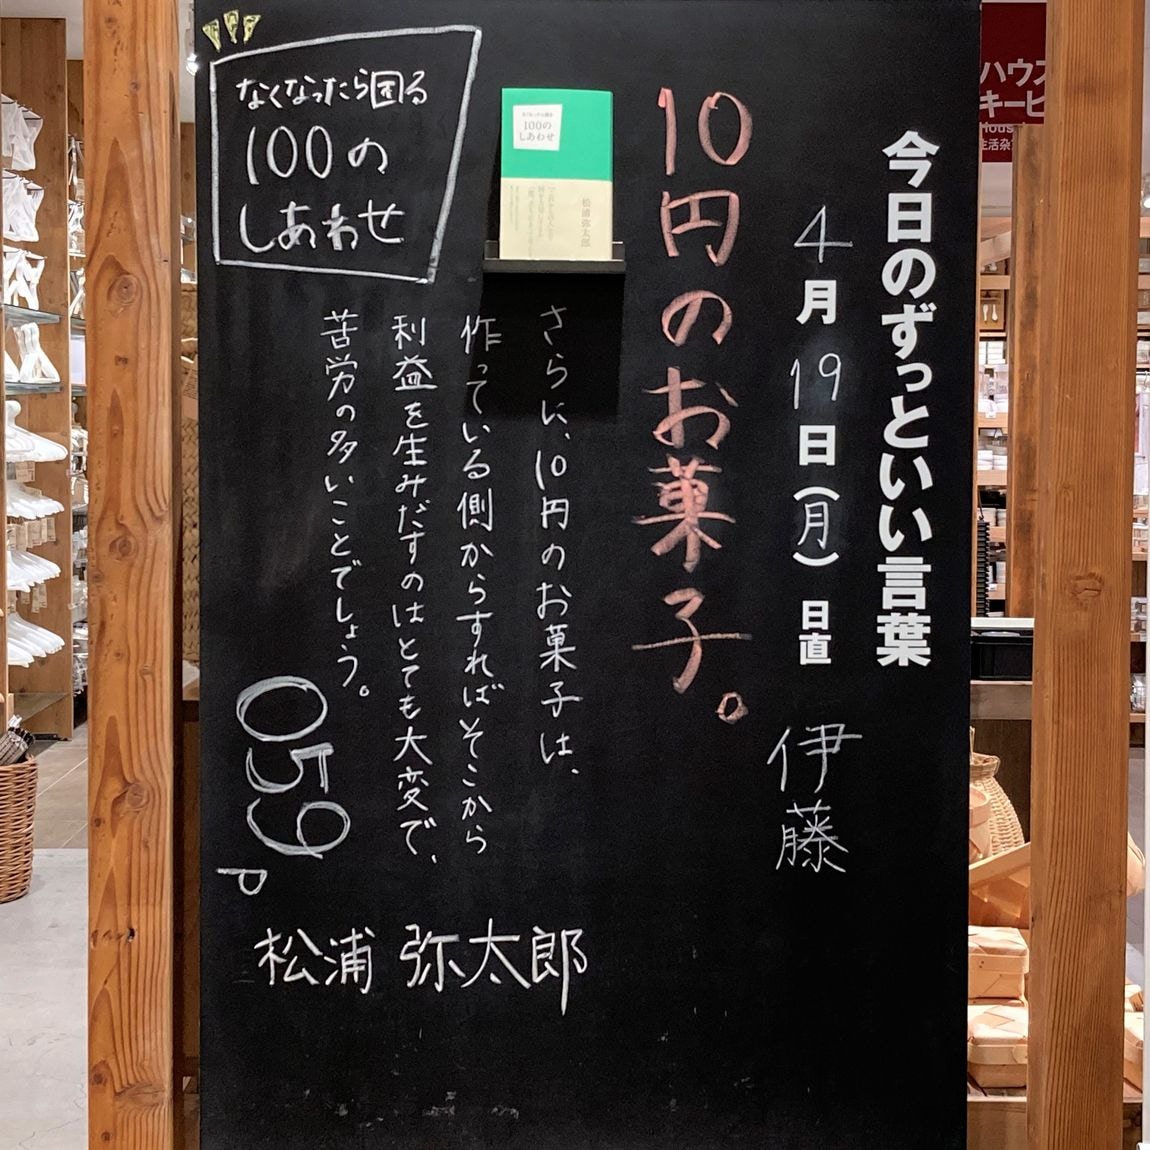 今日のずっといい言葉
4月19日(月) 日直 伊藤
10円のお菓子。
さらに、10円のお菓子は、
作っている側からすればそこから
利益を生みだすのはとても大変で、
苦労の多いことでしょう。
059P
松浦 弥太郎
なくなったら困る
100の
しあわせ
なくなったら困る
100の
しあわせ
松浦弥太郎
ハウス
キーピ
Hous
生活雑